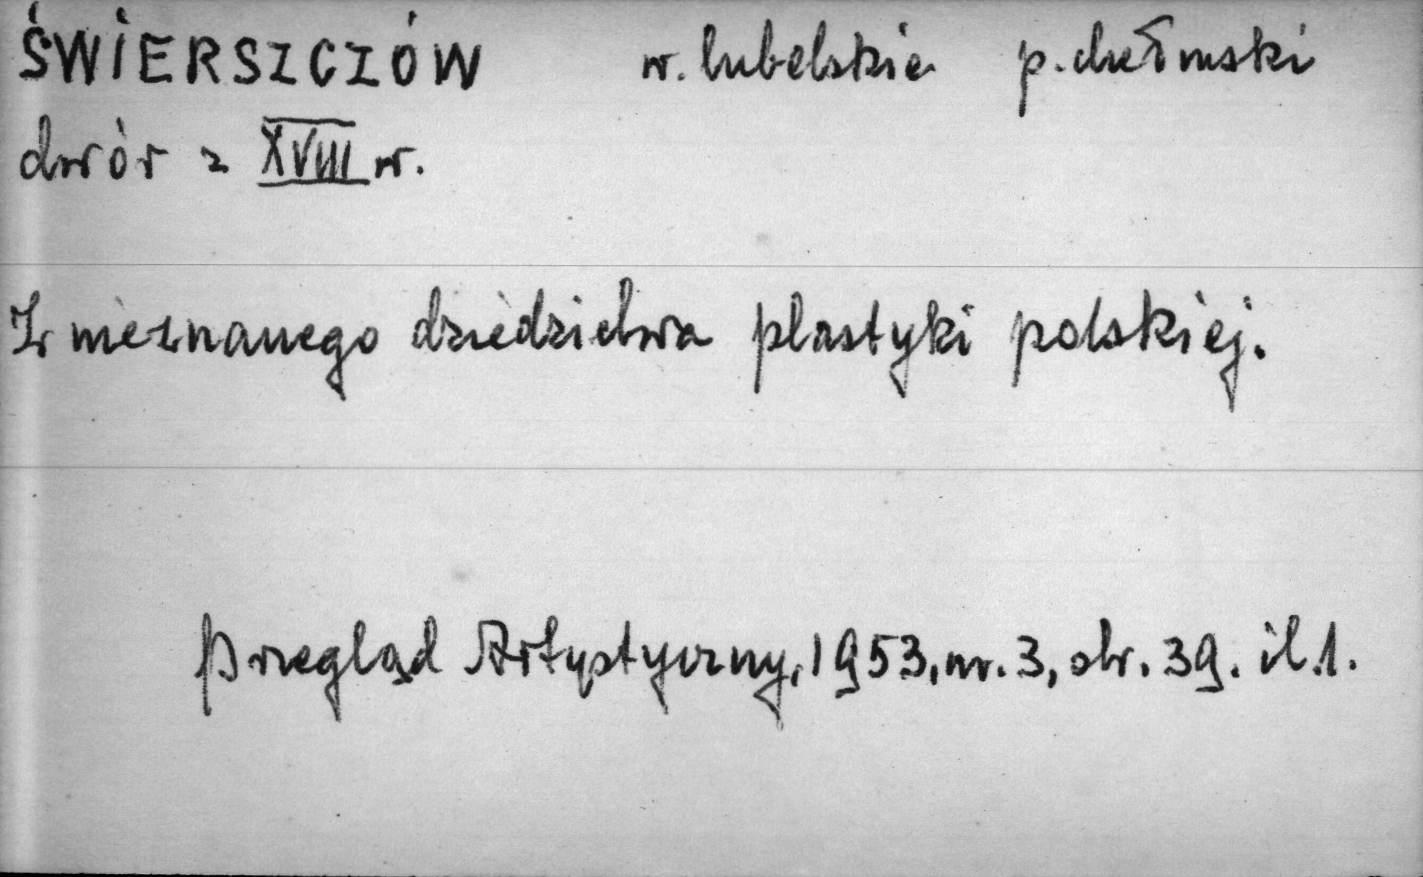 ŚWIERSZCZÓW w. lubelskie p. chełmski
dwór z XVIII w.
Z nieznanego dziedzictwa plastyki polskiej.
Przegląd Artystyczny, 1953, nr. 3, str. 39. il. 1.